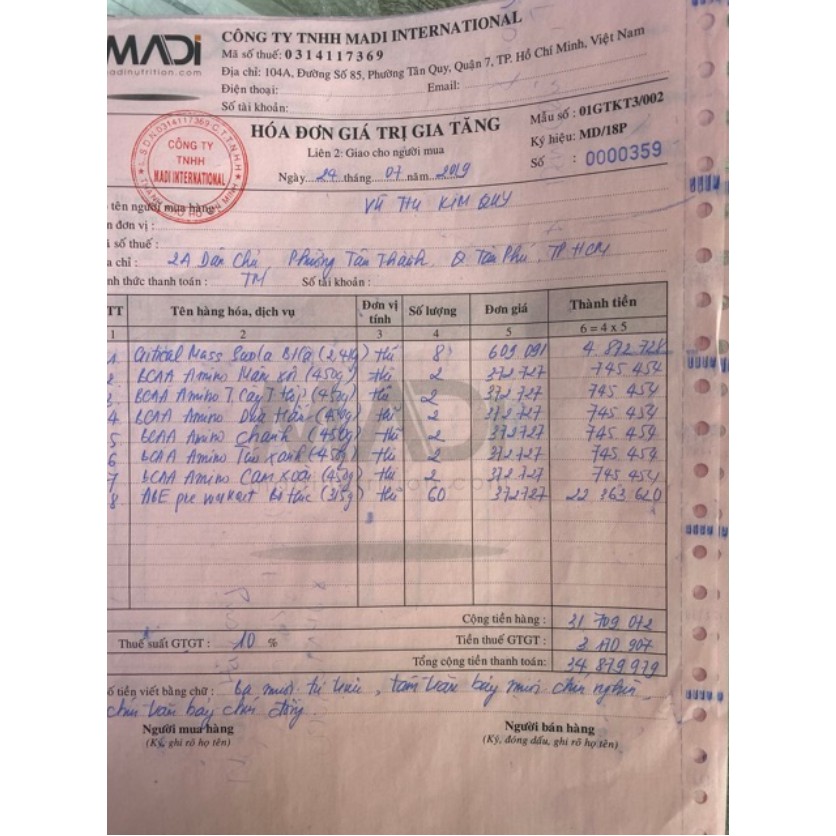 MADI
CÔNG TY TNHH MADI INTERNATIONAL
Mã số thuế: 0314117369
adinutrition.com
Địa chỉ: 104A, Đường Số 85, Phường Tân Quy, Quận 7, TP. Hồ Chí Minh, Việt Nam
Điện thoại: Email:
Số tài khoản:
HÓA ĐƠN GIÁ TRỊ GIA TĂNG
Mẫu số : 01GTKT3/002
Liên 2: Giao cho người mua
Ký hiệu: MD/18P
Số : 0000359
CÔNG TY
TNHH
MADI INTERNATIONAL
Ngày 24 tháng 07 năm 2019
tên người mua hàng: Vũ Thụ Kim Quy
n đơn vị :
số thuế :
a chỉ : 2A Dân Chủ, Phường Tân Thành, Q Tân Phú, TP HCM
nh thức thanh toán : TM Số tài khoản :
TT Tên hàng hóa, dịch vụ Đơn vị tính Số lượng Đơn giá Thành tiền
1 2 3 4 5 6 = 4 x 5
1 Critical Mass 8 609.091 4.872.728
2 BCAA Amino (450g) 2 372.727 745.454
3 BCAA Amino (450g) 2 372.727 745.454
4 BCAA Amino (450g) 2 372.727 745.454
5 BCAA Amino Chanh (450g) 2 372727 745.454
6 BCAA Amino Táo xanh (450g) 2 372.727 745.454
7 BCAA Amino Cam xoài (450g) 2 372.727 745 454
8 ABE pre (315g) 60 372727 22 363 620
Cộng tiền hàng : 31 709 072
Thuế suất GTGT : 10 % Tiền thuế GTGT : 3 170 907
Tổng cộng tiền thanh toán: 34 879 979
ố tiền viết bằng chữ : ba mươi tư triệu, tám trăm bảy mươi chín nghìn
chín trăm bảy chín đồng.
Người mua hàng Người bán hàng
(Ký, ghi rõ họ tên) (Ký, đóng dấu, ghi rõ họ tên)